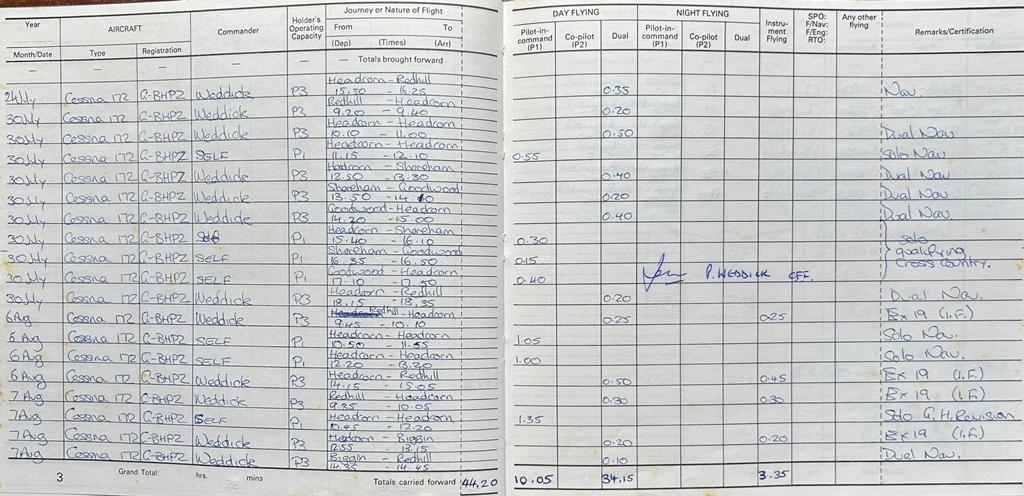 Year AIRCRAFT Commander Holder's Operating Capacity Journey or Nature of Flight DAY FLYING NIGHT FLYING Instrument Flying SPO: F/Nav: F/Eng: RTO: Any other flying Remarks/Certification
Month/Date Type Registration From To (Dep) (Times) (Arr) Pilot-in-command (P1) Co-pilot (P2) Dual Pilot-in-command (P1) Co-pilot (P2) Dual
— — — — — Totals brought forward
24 Jly Cessna 172 G-BHPZ Weddick P3 Headcorn - Redhill 15.50 - 16.25 0.35 Nav.
30 Jly Cessna 172 G-BHPZ Weddick P3 Redhill - Headcorn 9.20 - 9.40 0.20
30 Jly Cessna 172 G-BHPZ Weddick P3 Headcorn - Headcorn 10.10 - 11.00 0.50 Dual Nav
30 Jly Cessna 172 G-BHPZ SELF P1 Headcorn - Headcorn 11.15 - 12.10 0.55 Solo Nav
30 Jly Cessna 172 G-BHPZ Weddick P3 Hadcorn - Shoreham 12.50 - 13.30 0.40 Dual Nav
30 Jly Cessna 172 G-BHPZ Weddick P3 Shoreham - Goodwood 13.50 - 14.10 0.20 Dual Nav
30 Jly Cessna 172 G-BHPZ Weddick P3 Goodwood - Headcorn 14.20 - 15.00 0.40 Dual Nav
30 Jly Cessna 172 G-BHPZ Self P1 Headcorn - Shoreham 15.40 - 16.10 0.30 Solo
30 Jly Cessna 172 G-BHPZ SELF P1 Shoreham - Goodwood 16.35 - 16.50 0.15 qualifying
30 Jly Cessna 172 G-BHPZ SELF P1 Goodwood - Headcorn 17.10 - 17.50 0.40 P. WEDDICK CFI. Cross Country.
30 Jly Cessna 172 G-BHPZ Weddick P3 Headcorn - Redhill 18.15 - 18.35 0.20 Dual Nav.
6 Aug Cessna 172 G-BHPZ Weddick P3 Redhill - Headcorn 9.45 - 10.10 0.25 0.25 Ex 19 (I.F.)
6 Aug Cessna 172 G-BHPZ SELF P1 Headcorn - Headcorn 10.50 - 11.55 1.05 Solo Nav.
6 Aug Cessna 172 G-BHPZ SELF P1 Headcorn - Headcorn 12.20 - 13.20 1.00 Solo Nav.
6 Aug Cessna 172 G-BHPZ Weddick P3 Headcorn - Redhill 14.15 - 15.05 0.50 0.45 Ex 19 (I.F.)
7 Aug Cessna 172 G-BHPZ Weddick P3 Redhill - Headcorn 9.35 - 10.05 0.30 0.30 Ex 19 (I.F)
7 Aug Cessna 172 G-BHPZ SELF P1 Headcorn - Headcorn 10.45 - 12.20 1.35 Solo G.H. Revision
7 Aug Cessna 172 G-BHPZ Weddick P3 Headcorn - Biggin 12.55 - 13.15 0.20 0.20 Ex 19 (I.F.)
7 Aug Cessna 172 G-BHPZ Weddick P3 Biggin - Redhill 14.35 - 14.45 0.10 Dual Nav.
3 Grand Total: hrs. mins Totals carried forward 44.20 10.05 34.15 3.35